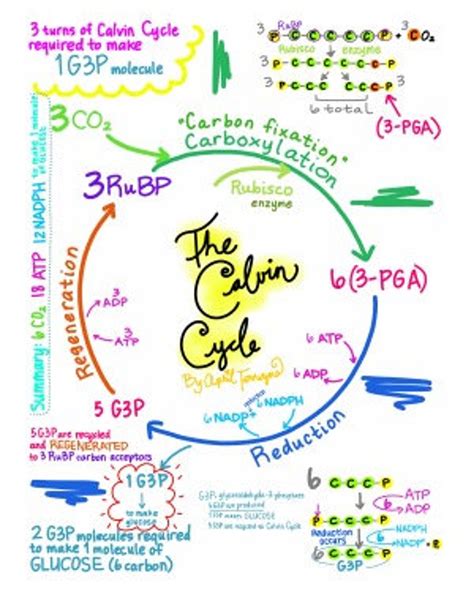 3 turns of Calvin Cycle
required to make
1G3P molecule
3 RuBP
P-C-C-C-C-C-P + 3CO₂
Rubisco enzyme
3 P-C-C-C-C-C-P
3 P-C-C-C C-C-C-P 3
6 total
(3-PGA)
3CO₂
"Carbon fixation"
Carboxylation
Rubisco
enzyme
3RuBP
6(3-PGA)
The
Calvin
Cycle
By April
Summary: 6CO₂ 18 ATP 12NADPH to make 1 molecule
of GLUCOSE
Regeneration
3
ADP
3
ATP
6 ATP
6 ADP
6 NADPH
6 NADP+
Reduction
5 G3P
5 G3P are recycled
and REGENERATED
to 3 RuBP carbon acceptors
1G3P
to make
glucose
2 G3P molecules required
to make 1 molecule of
GLUCOSE (6 carbon)
G3P: glyceraldehyde-3-phosphate
6 G3P are produced
1 G3P makes GLUCOSE
5 G3P are recycled to Calvin Cycle
6 C-C-C-P
ATP
ADP
P-C-C-C-P
Reduction
occurs
NADPH
NADP+ + P
C-C-C-P
G3P